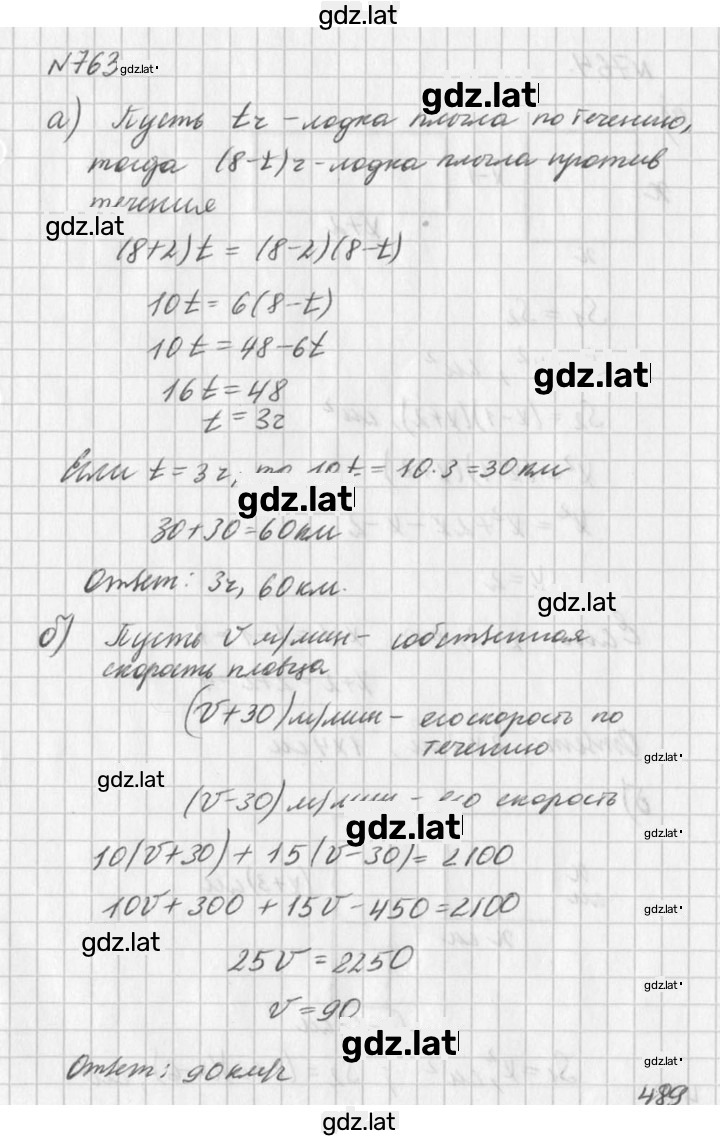 gdz.lat
N763 gdz.lat
gdz.lat
а) Пусть tч - лодка плыла по течению,
тогда (8-t)ч - лодка плыла против
течение
gdz.lat
(8+2)t = (8-2)(8-t)
10t = 6(8-t)
10t = 48-6t
gdz.lat
16t = 48
t = 3ч
Если t = 3ч, то 10t = 10·3 = 30км
gdz.lat
30+30=60км
Ответ: 3ч, 60км.
gdz.lat
б) Пусть v м/мин - собственная
скорость пловца
(v+30) м/мин - его скорость по
течению
gdz.lat
gdz.lat
(v-30) м/мин - его скорость
gdz.lat
gdz.lat
10(v+30) + 15(v-30) = 2100
10v+300 + 15v-450=2100
gdz.lat
gdz.lat
25v = 2250
gdz.lat
v = 90
gdz.lat
gdz.lat
Ответ: 90км/ч
489
gdz.lat